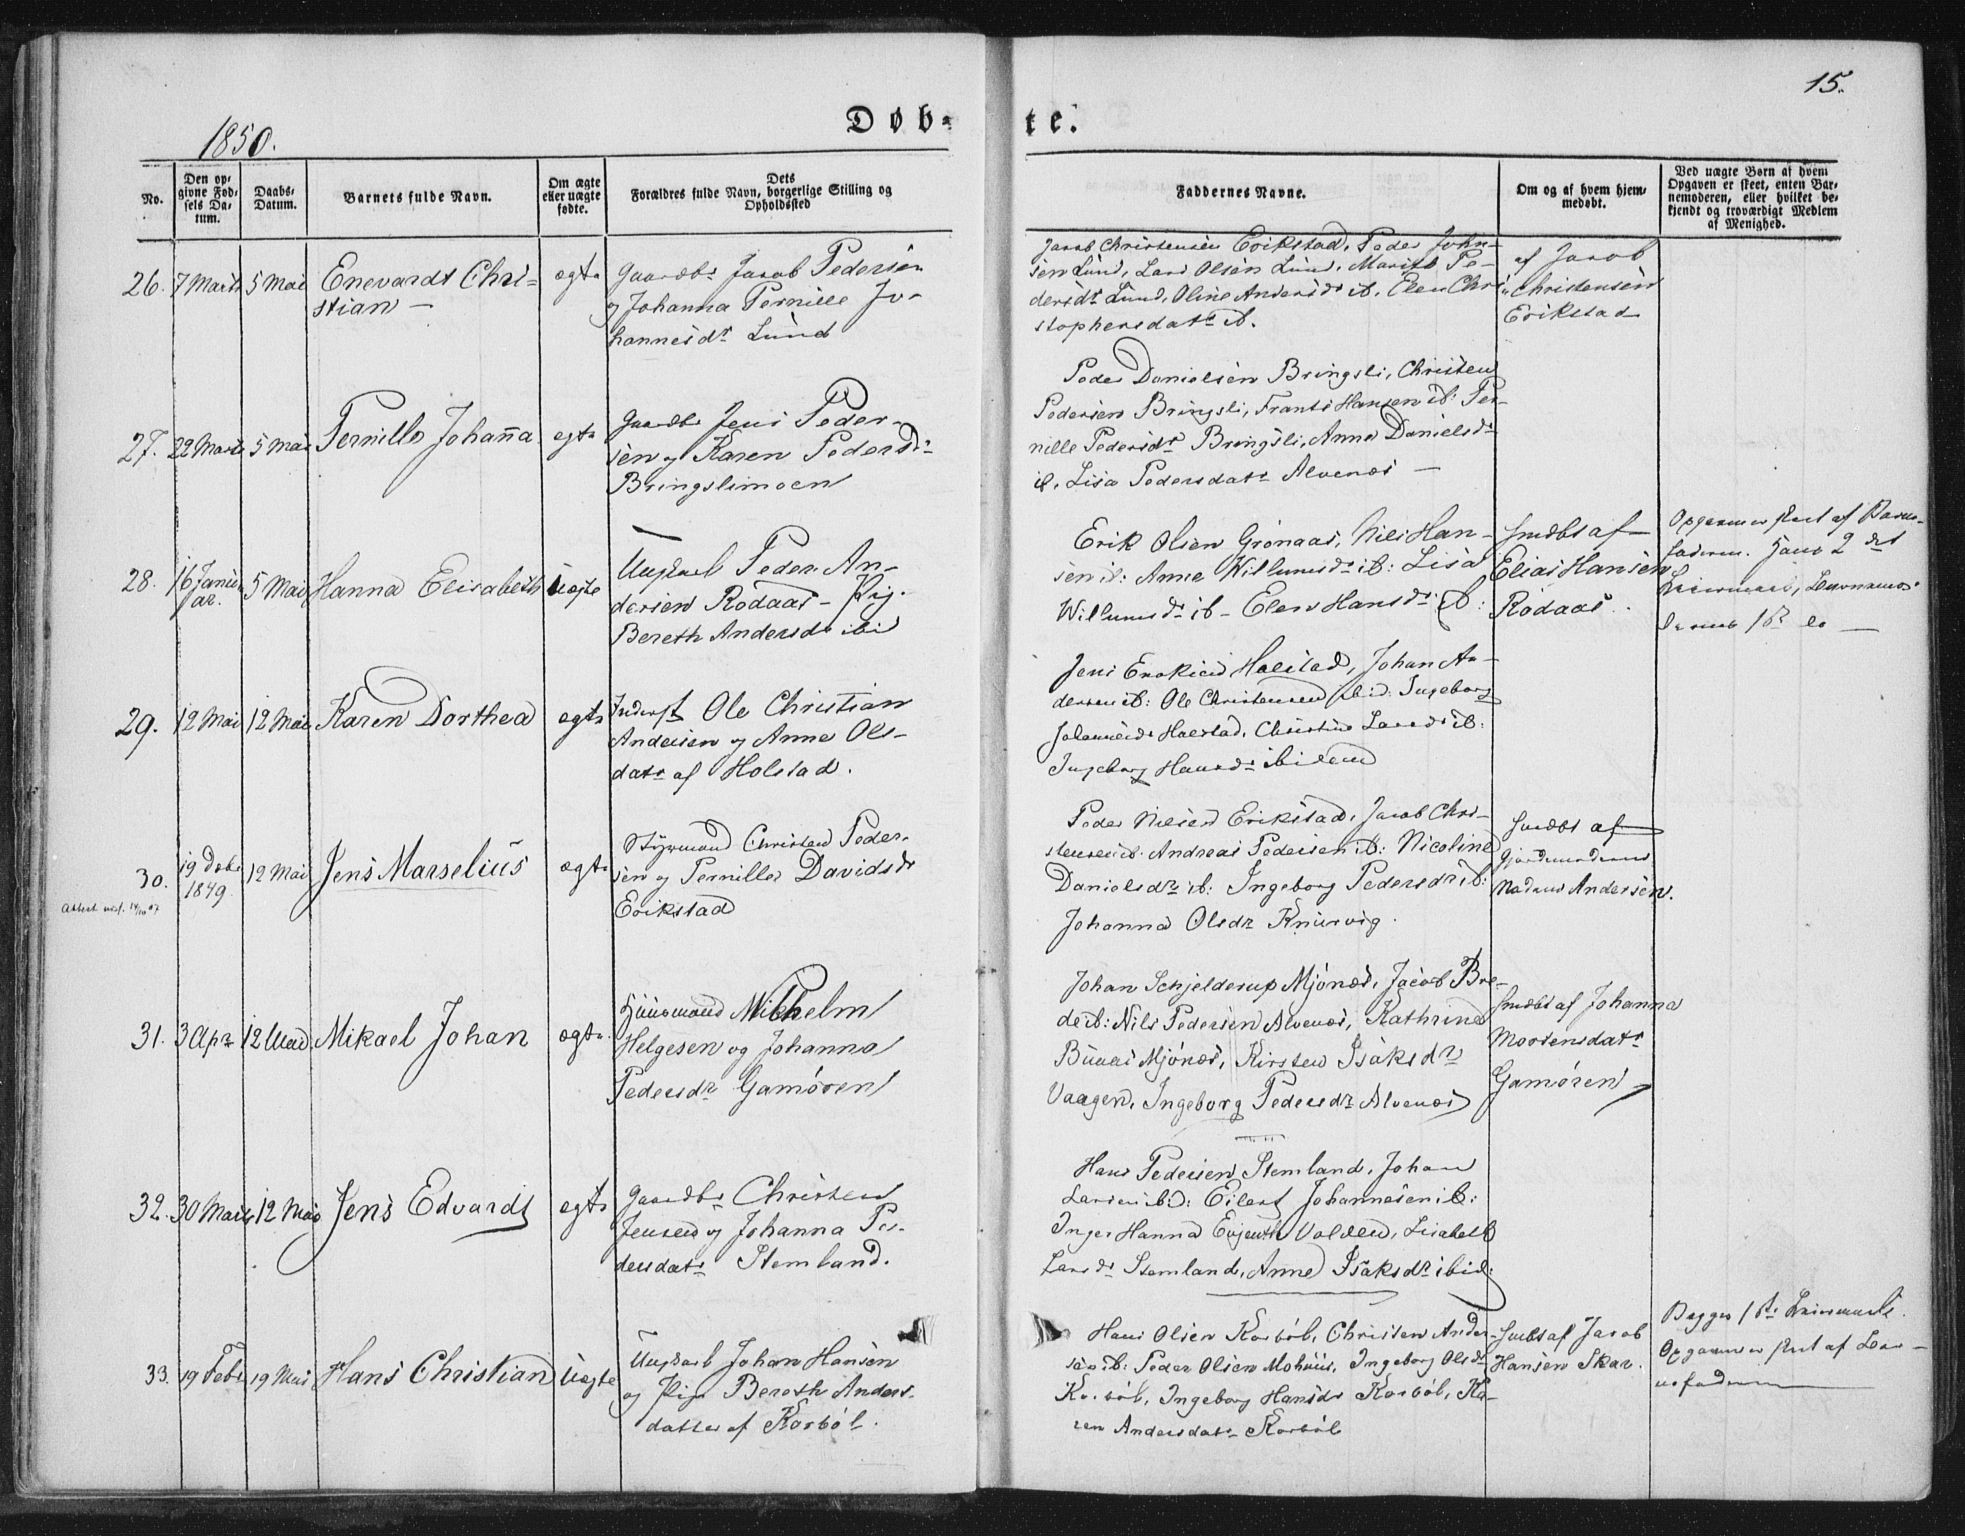 15.
1850.
Døb-
te.
No.
Den op-
givne Fød-
sels Da-
tum.
Daabs-
Datum.
Barnets fulde Navn.
Om ægte
eller uægte
fødte.
Dets
Forældres fulde Navn, borgerlige Stilling og
Opholdssted
Faddernes Navne.
Om og af hvem hjem-
medøbt.
Ved uægte Børn af hvem
Opgaven er skeet, enten Bar-
nemoderen, eller hvilket be-
kjendt og troværdigt Medlem
af Menighed.
26. 7 Marts 5 Mai Enevardt Chri-
stian —
ægte
Gaardbr Jacob Pedersen
og Johanna Pernille Jo-
hannesdr Lund
Jacob Christensen Erikstad, Peder John-
sen Lund, Lars Olsen Lund, Marith Pe-
dersdr Lund, Oline Andersdr ib, Elen Chri-
stophersdatr ib.
af Jacob
Christensen
Erikstad
27. 22 Marts 5 Mai Pernille Johanna egte
Gaardbr Jens Peder-
sen og Karen Pedersdr
Bringslimoen
Peder Danielsen Bringsli, Christen
Pedersen Bringsli, Frants Hansen ib: Per-
nille Pedersdr Bringsli, Anne Danielsdr
ib, Lisa Pedersdatr Alvenes —
28. 16 Janu-
ar.
5 Mai Hanna Elisabeth uegte
Ungkarl Peder An-
dersen Rødaas - Pig.
Bereth Andersdr ibid
Erik Olsen Grønaas, Nils Han-
sen ib: Anne Willumsdr ib: Lisa
Willumsdr ib - Elen Hansdr ib:
hmdbt af
Elias Hansen
Rødaas.
Opgaven er skeet af Barne-
faderen. Hans 2 det
Leiermaal,
1st do —
29. 12 Mai 12 Mai Karen Dorthea egte
Inderst Ole Christian
Andersen og Anne Ols-
datr af Holstad.
Jens Holstad, Johan An-
dersen ib: Ole Christensen ibid: Ingeborg
Johannesdr Holstad, Christine Larsdr ib:
Ingeborg Hansdr ibidem
30. 19 Debr
1849
12 Mai Jens Marselius ægte
Attest meds. 14/10 07
Styrmand Christen Peder-
sen og Pernille Davidsdr
Erikstad
Peder Nielsen Erikstad, Jacob Chri-
stensen ib. Andreas Pedersen ib: Nicoline
Danielsdr ib: Ingeborg Pedersdr ib:
Johanna Olsdr Knurvig.
hmdbt af
Gjordemoderen
Madam Andersen.
31. 3 Apr 12 Mai Mikael Johan ægte
Huusmand Wilhelm
Helgesen og Johanna
Pedersdr Gamøren
Johan Schjelderup Mjønes, Jacob Bre-
de ib: Nils Pedersen Alvenes, Kathrine
Buaas Mjønes, Kirsten Isaksdr
Vaagen, Ingeborg Pedersdr Alvenes
hmdbt af Johanna
Mortensdatr
Gamøren
32. 30 Marts 12 Mai Jens Edvardt egte
Gaardbr Christen
Jensen og Johanna Pe-
dersdatr Stemland.
Hans Pedersen Stemland, Johan
Larsen ibid: Eilert Johannesen ib:
Inger Hanna Evjenth Volden, Lisabeth
Larsdr Stemland, Anne Isaksdr ibid:
33. 19 Febr 19 Mai Hans Christian uegte
Ungkarl Johan Hansen
og Pige Bereth Anders-
datter af Korbøl.
Hans Olsen Korbøl, Christen Ander-
sen ib: Peder Olsen Mohuus, Ingeborg Olsdr
Korbøl, Ingeborg Hansdr Korbøl, Ka-
ren Andersdatr Korbøl
hmdbt af Jacob
Hansen Skar.
Begges 1ste Leiermaal.
Opgaven er skeet af Bar-
nefaderen